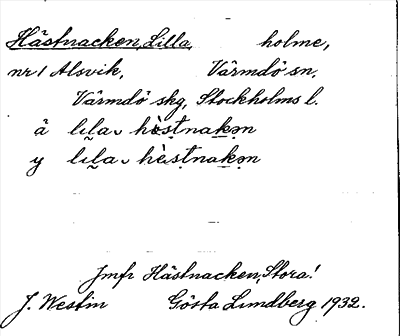 Hästnacken, Lilla, holme,
nr 1 Alsvik, Värmdö sn.
Värmdö skg, Stockholms l.
ä lıl̬a ̮ hèṣtnak̬ən
y lıl̬a ̮ hèṣtnak̬ən
Jmfr Hästnacken, Stora!
J. Westin Gösta Lundberg 1932.